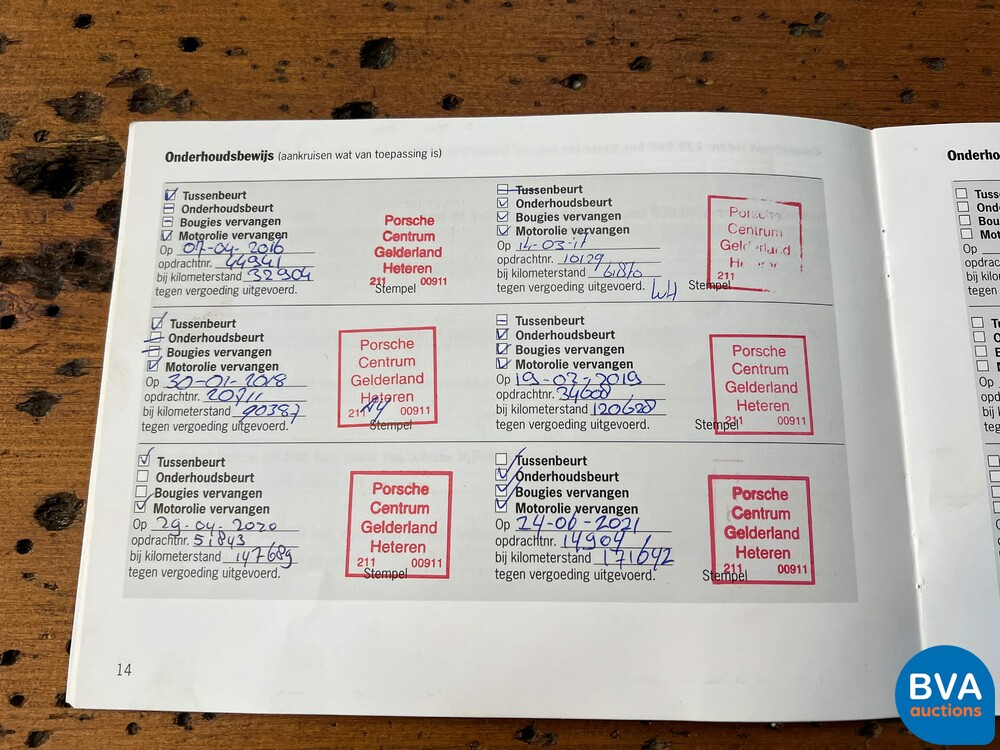 Onderhoudsbewijs (aankruisen wat van toepassing is)
Tussenbeurt
Onderhoudsbeurt
Bougies vervangen
Motorolie vervangen
Op 07-04-2016
opdrachtnr. 44941
bij kilometerstand 32904
tegen vergoeding uitgevoerd.
Porsche
Centrum
Gelderland
Heteren
211 00911
Stempel
Tussenbeurt
Onderhoudsbeurt
Bougies vervangen
Motorolie vervangen
Op 14-03-17
opdrachtnr. 10129
bij kilometerstand 61870
tegen vergoeding uitgevoerd.
WH
Porsche
Centrum
Gelderland
211
Stempel
Tussenbeurt
Onderhoudsbeurt
Bougies vervangen
Motorolie vervangen
Op 30-01-2018
opdrachtnr. 20711
bij kilometerstand 90387
tegen vergoeding uitgevoerd.
Porsche
Centrum
Gelderland
Heteren
211 00911
Stempel
Tussenbeurt
Onderhoudsbeurt
Bougies vervangen
Motorolie vervangen
Op 19-03-2019
opdrachtnr. 34608
bij kilometerstand 120628
tegen vergoeding uitgevoerd.
Porsche
Centrum
Gelderland
Heteren
211 00911
Stempel
Tussenbeurt
Onderhoudsbeurt
Bougies vervangen
Motorolie vervangen
Op 29-04-2020
opdrachtnr. 51843
bij kilometerstand 147689
tegen vergoeding uitgevoerd.
Porsche
Centrum
Gelderland
Heteren
211 00911
Stempel
Tussenbeurt
Onderhoudsbeurt
Bougies vervangen
Motorolie vervangen
Op 24-06-2021
opdrachtnr. 14904
bij kilometerstand 171642
tegen vergoeding uitgevoerd.
Porsche
Centrum
Gelderland
Heteren
211 00911
Stempel
14
Onderho
Tusse
Ond
Bou
Mot
Op
opdrac
bij kil
tegen
BVA
auctions